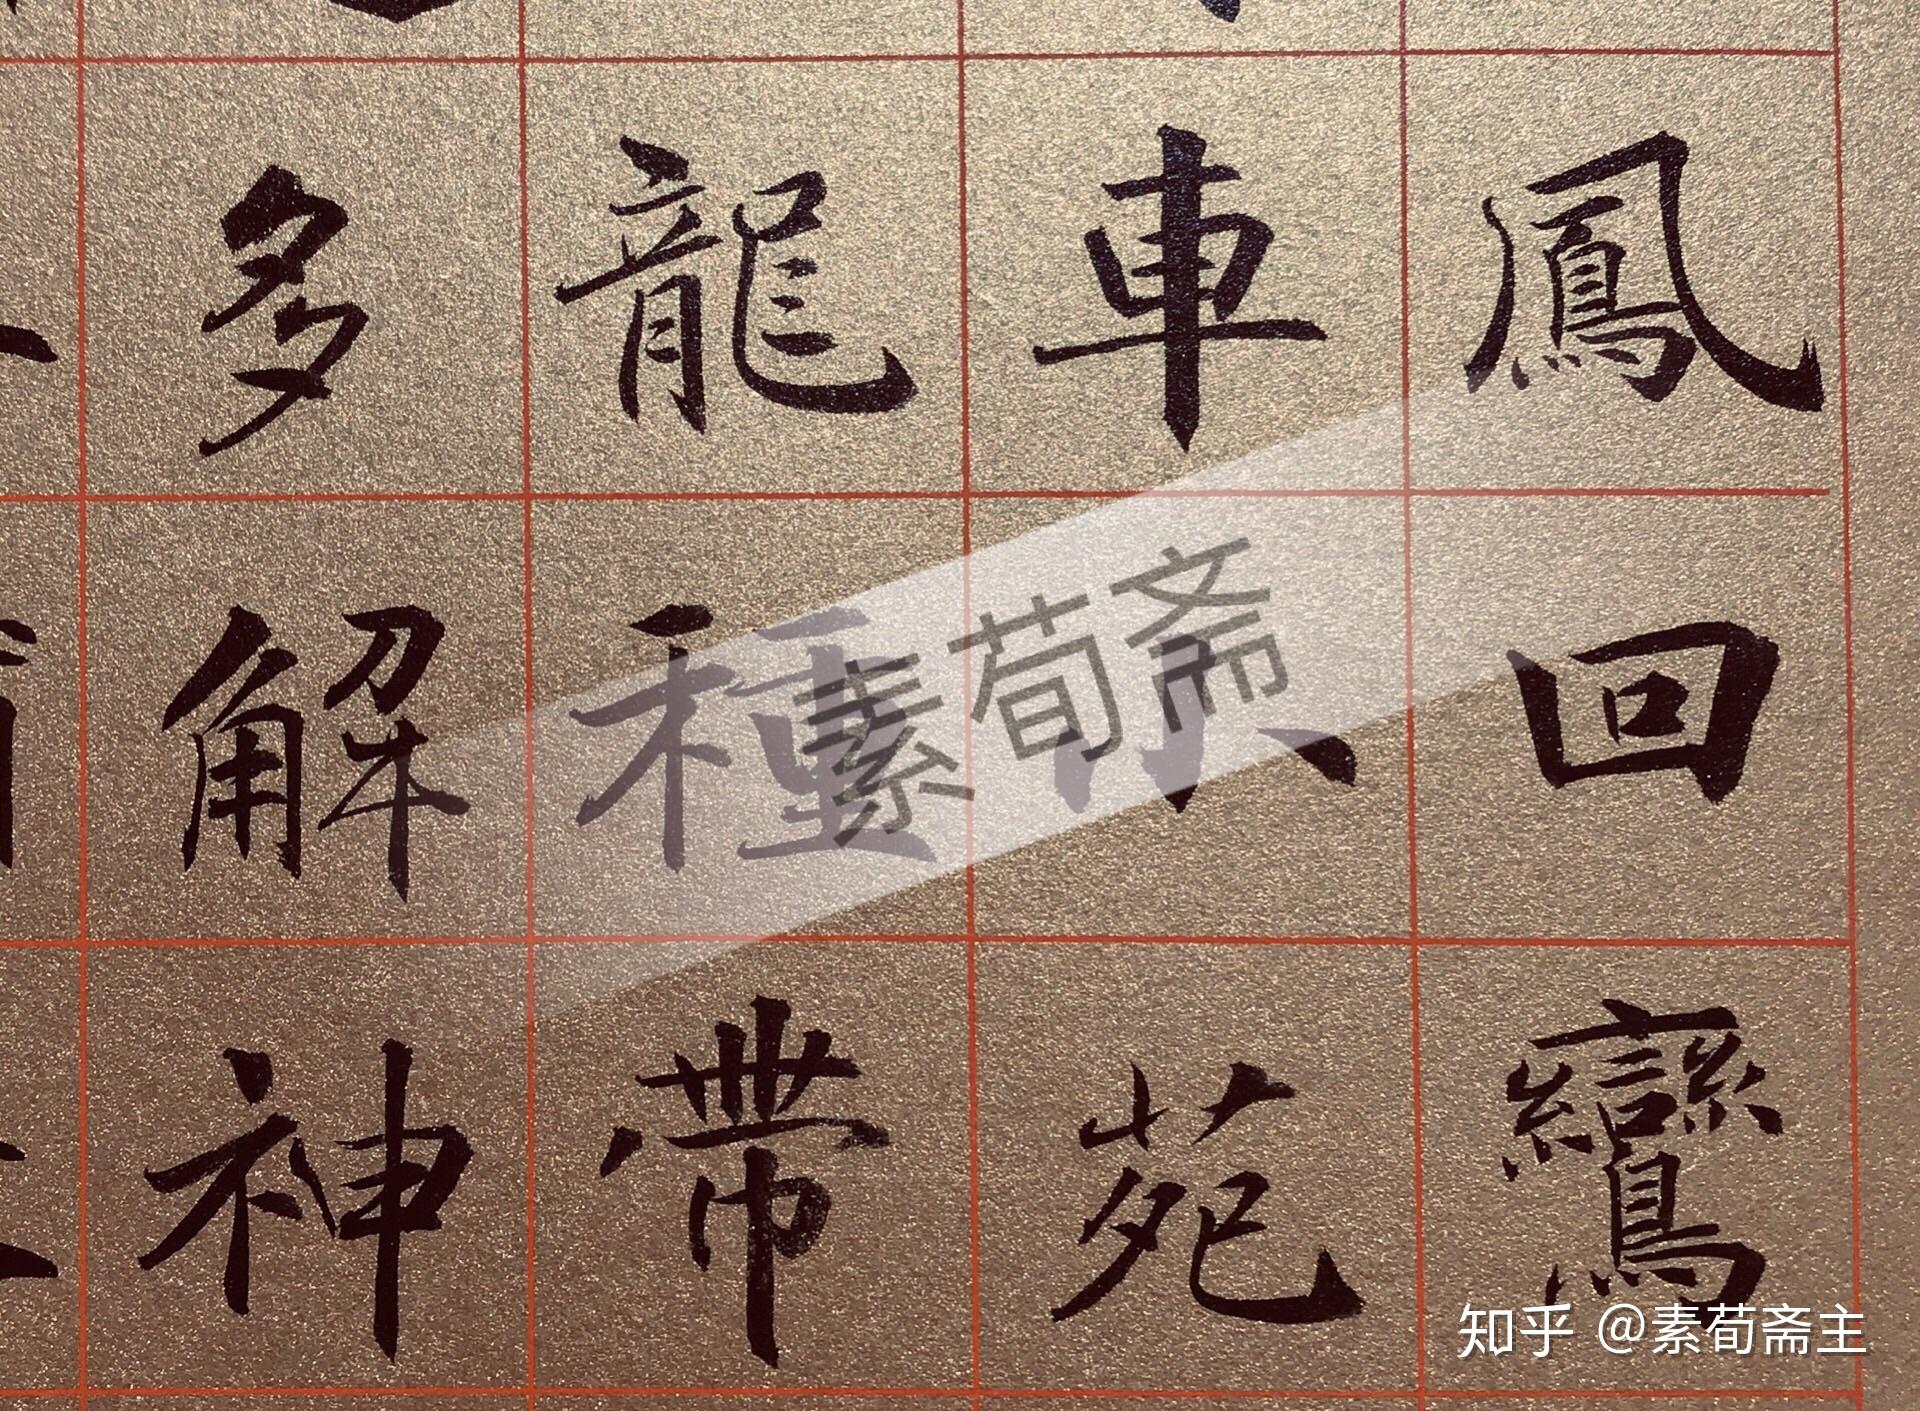 鳳回鸞
車小苑
龍種帶
多解神
素荀斋
知乎 @素荀斋主